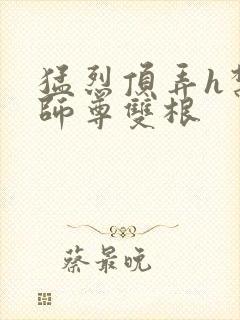 猛烈頂弄h禁
師尊雙根
蔡最晚